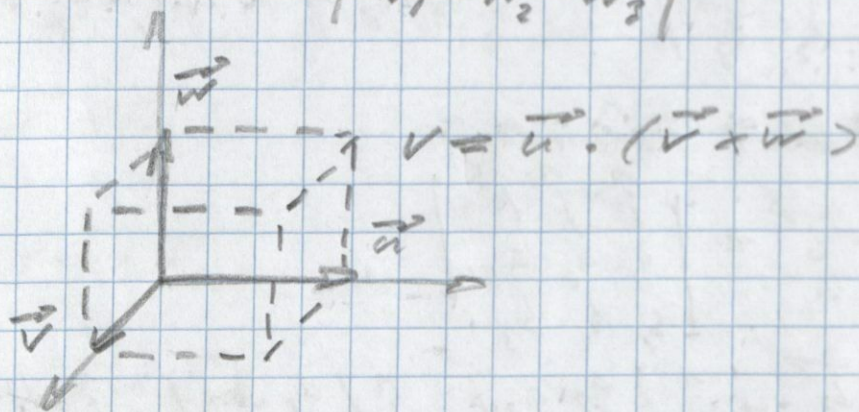 w⃗
V = u⃗ · (v⃗ × w⃗)
u⃗
v⃗